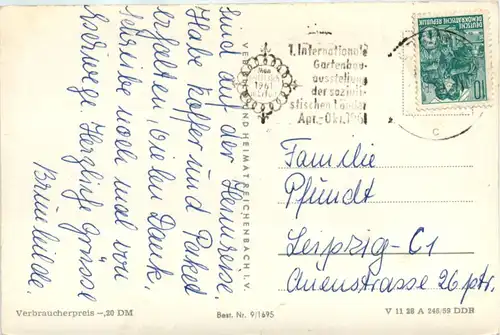 sind auf der Heimreise.
Habe Koffer und Paked
erhalten, Vielen Dank,
schreibe noch mal von
Herzliche Grüsse
Brunhilde.
1. Internationale
Gartenbau-
ausstellung
der soziali-
stischen Länder
Apr.-Okt. 1961
1961
DEUTSCHE
DEMOKRATISCHE REPUBLIK
10
C
UND HEIMAT REICHENBACH I. V.
Familie
Pfundt
Leipzig-C1
Auenstrasse 26 ptr.
Verbraucherpreis -,20 DM
Best. Nr. 9/1695
V 11 28 A 246/59 DDR